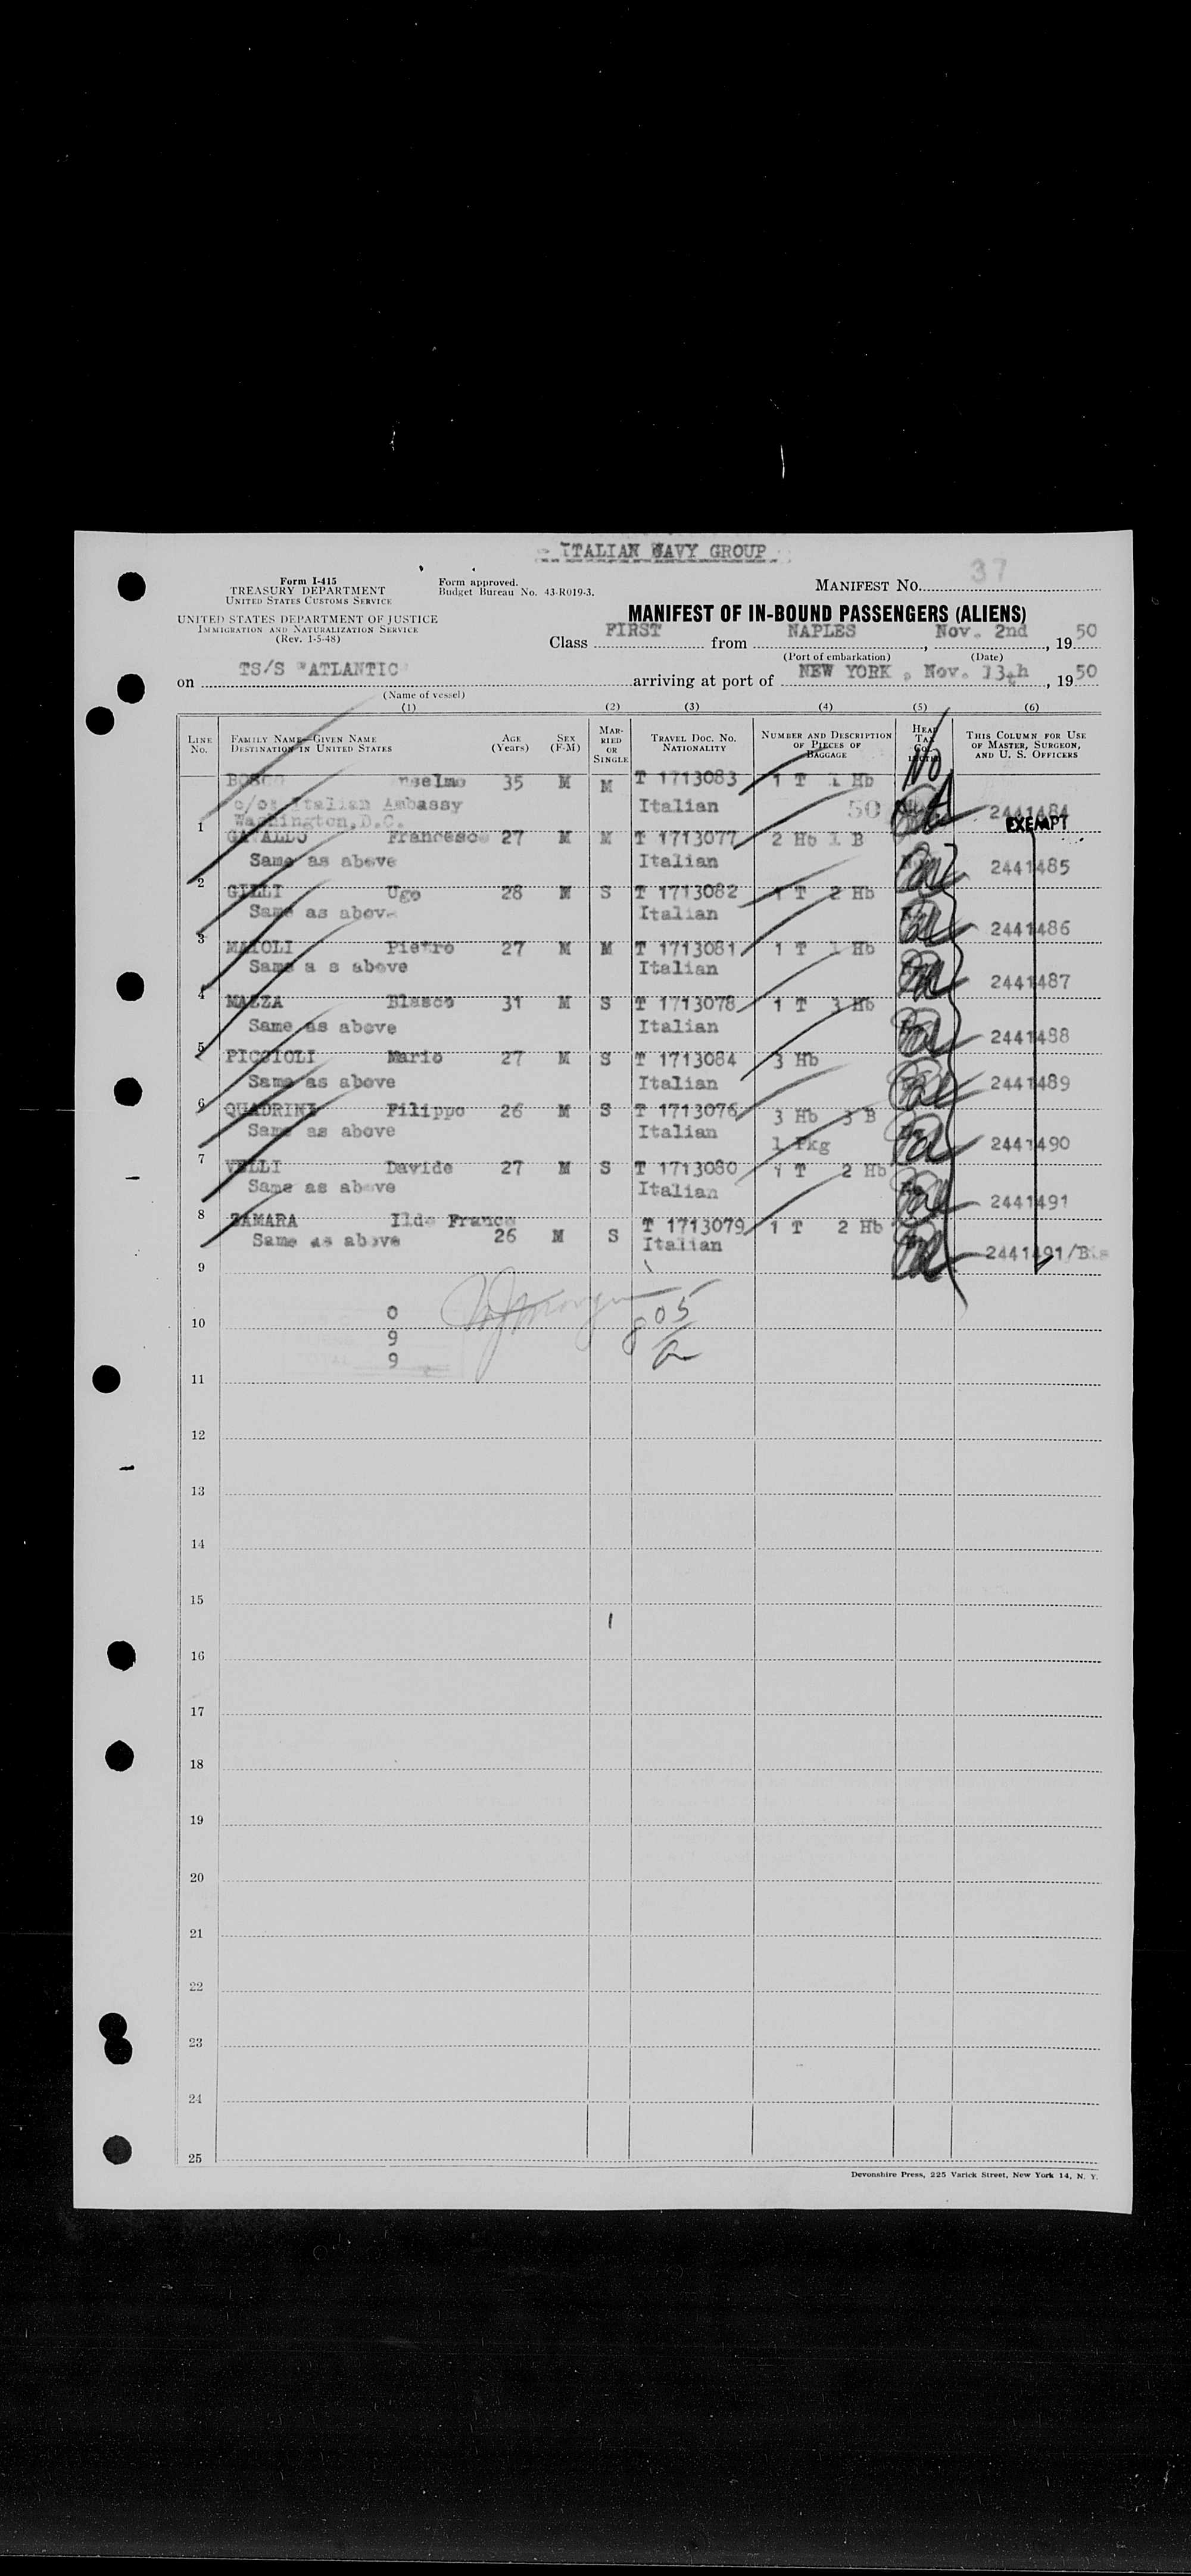 ITALIAN NAVY GROUP
Form I-415
TREASURY DEPARTMENT
UNITED STATES CUSTOMS SERVICE
Form approved.
Budget Bureau No. 43-R019-3.
MANIFEST NO. 37
UNITED STATES DEPARTMENT OF JUSTICE
IMMIGRATION AND NATURALIZATION SERVICE
(Rev. 1-5-48)
MANIFEST OF IN-BOUND PASSENGERS (ALIENS)
Class FIRST from NAPLES, Nov. 2nd, 1950
(Port of embarkation) (Date)
on TS/S "ATLANTIC" arriving at port of NEW YORK, Nov. 13th, 1950
(Name of vessel)
(1) (2) (3) (4) (5) (6)
LINE NO. FAMILY NAME—GIVEN NAME DESTINATION IN UNITED STATES AGE (YEARS) SEX (F-M) MARRIED OR SINGLE TRAVEL DOC. NO. NATIONALITY NUMBER AND DESCRIPTION OF PIECES OF BAGGAGE HEAD TAX THIS COLUMN FOR USE OF MASTER, SURGEON, AND U. S. OFFICERS
No
BOSCO Anselmo 35 M M T 1713083 1 T 1 Hb
c/o: Italian Ambassy Italian 50 2441484
Washington, D.C. EXEMPT
1
Francesco 27 M M T 1713077 2 Hb 1 B
Same as above Italian 2441485
2
GILLI Ugo 28 M S T 1713082 1 T 2 Hb
Same as above Italian 2441486
3
MAIOLI Pietro 27 M M T 1713081 1 T 1 Hb
Same a s above Italian 2441487
4
MAZZA Blasco 31 M S T 1713078 1 T 3 Hb
Same as above Italian 2441488
5
PICCIOLI Mario 27 M S T 1713084 3 Hb
Same as above Italian 2441489
6
QUADRINI Filippo 26 M S T 1713076 3 Hb 3 B
Same as above Italian 1 Pkg 2441490
7
VELLI Davide 27 M S T 1713080 1 T 2 Hb
Same as above Italian 2441491
8
ZAMARA Ildo Franco T 1713079 1 T 2 Hb
Same as above 26 M S Italian 2441491/Bis
9
0
10
805
9
9
11
12
13
14
15
16
17
18
19
20
21
22
23
24
25
Devonshire Press, 225 Varick Street, New York 14, N. Y.